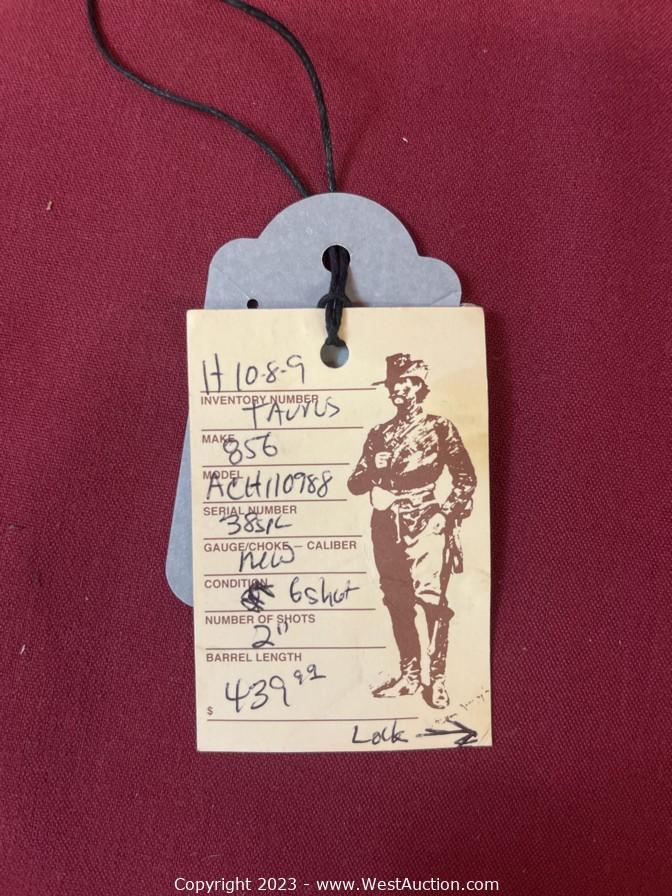 H 10-8-9
INVENTORY NUMBER
TAURUS
MAKE
856
MODEL
ACH110988
SERIAL NUMBER
38SPL
GAUGE/CHOKE — CALIBER
new
CONDITION
6shot
NUMBER OF SHOTS
2"
BARREL LENGTH
$ 439 99
Lock →
Copyright 2023 - www.WestAuction.com